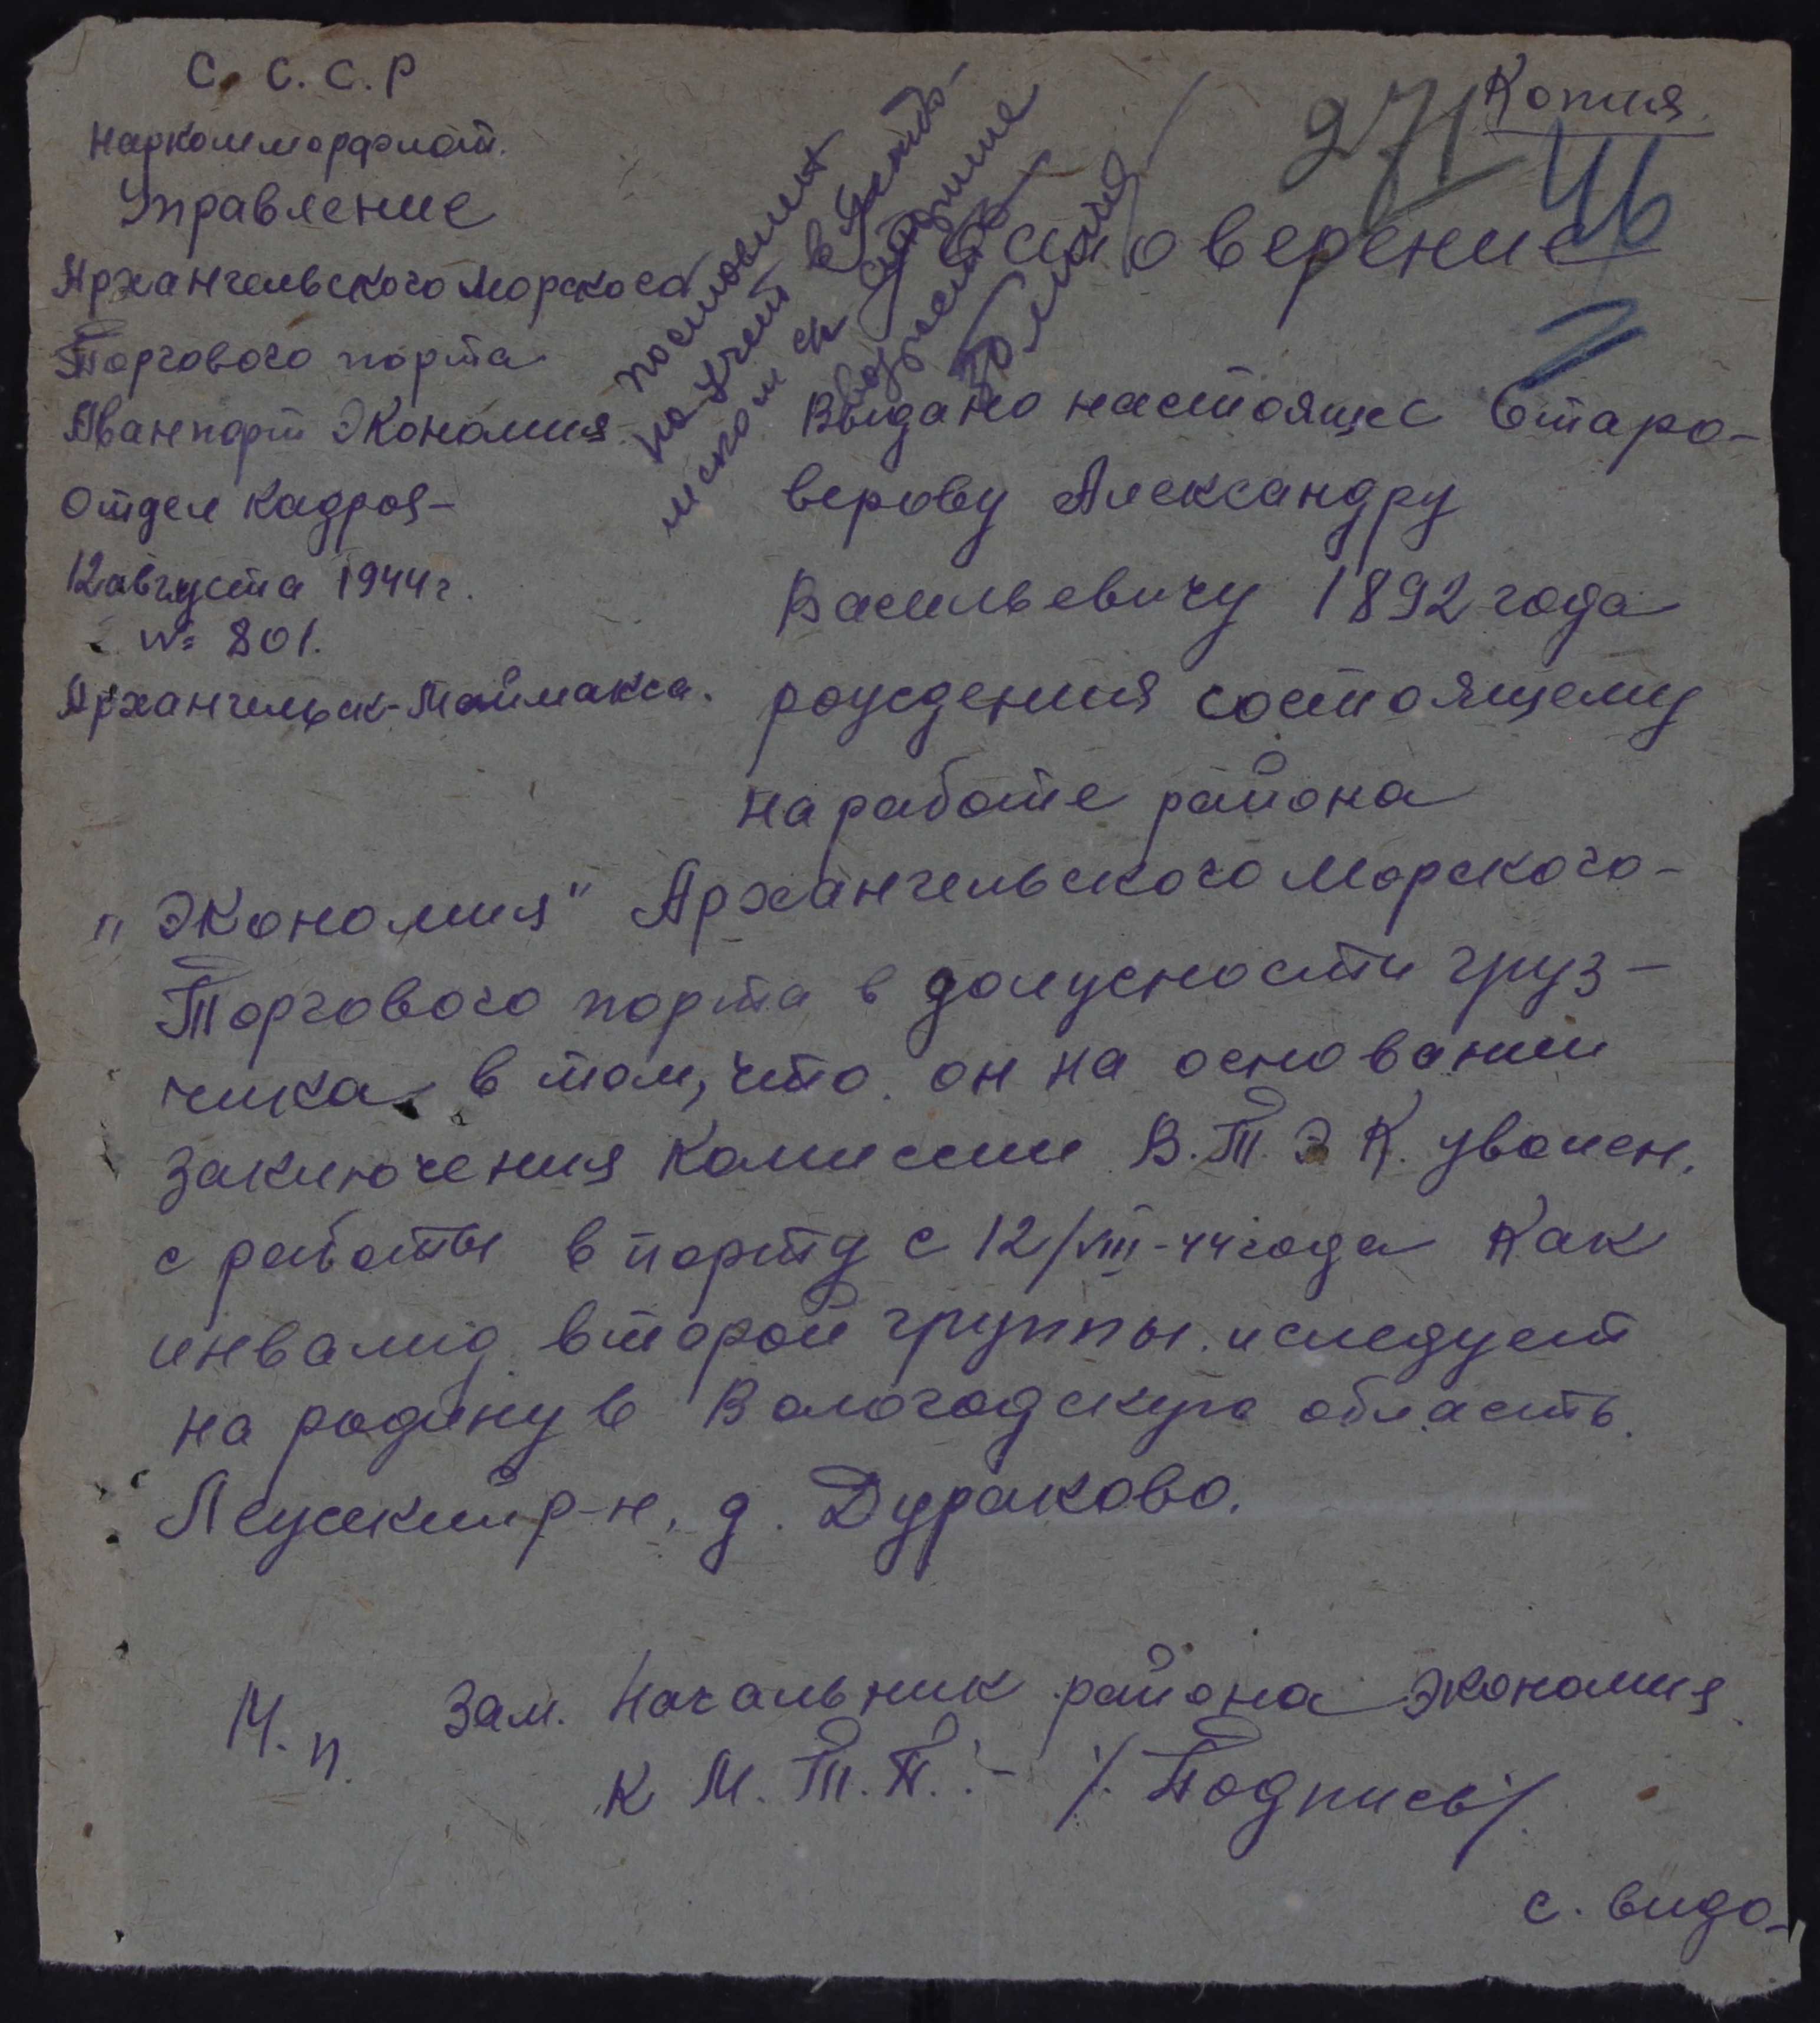 С. С. С. Р
Наркомморфлот.
Управление
Архангельского Морского
Торгового порта
Аванпорт Экономия.
Отдел Кадров-
12 августа 1944 г.
№ 801.
Архангельск-Маймакса.
Копия
271
46
поставлен
на учет в
возрасте
Удостоверение
Выдано настоящее Старо-
верову Александру
Васильевичу 1892 года
рождения состоящему
на работе района
"Экономия" Архангельского Морского-
Торгового порта в должности груз-
чика в том, что он на основании
заключения Комиссии В.Т.Э К. уволен.
с работы в порту с 12/VIII-44 года Как
инвалид второй группы и следует
на родину в Вологодскую область.
Леужский р-н, д. Дураково.
М. п. Зам. Начальник района Экономия
К М. Т. П. :- /Подпись/.
с. видо-